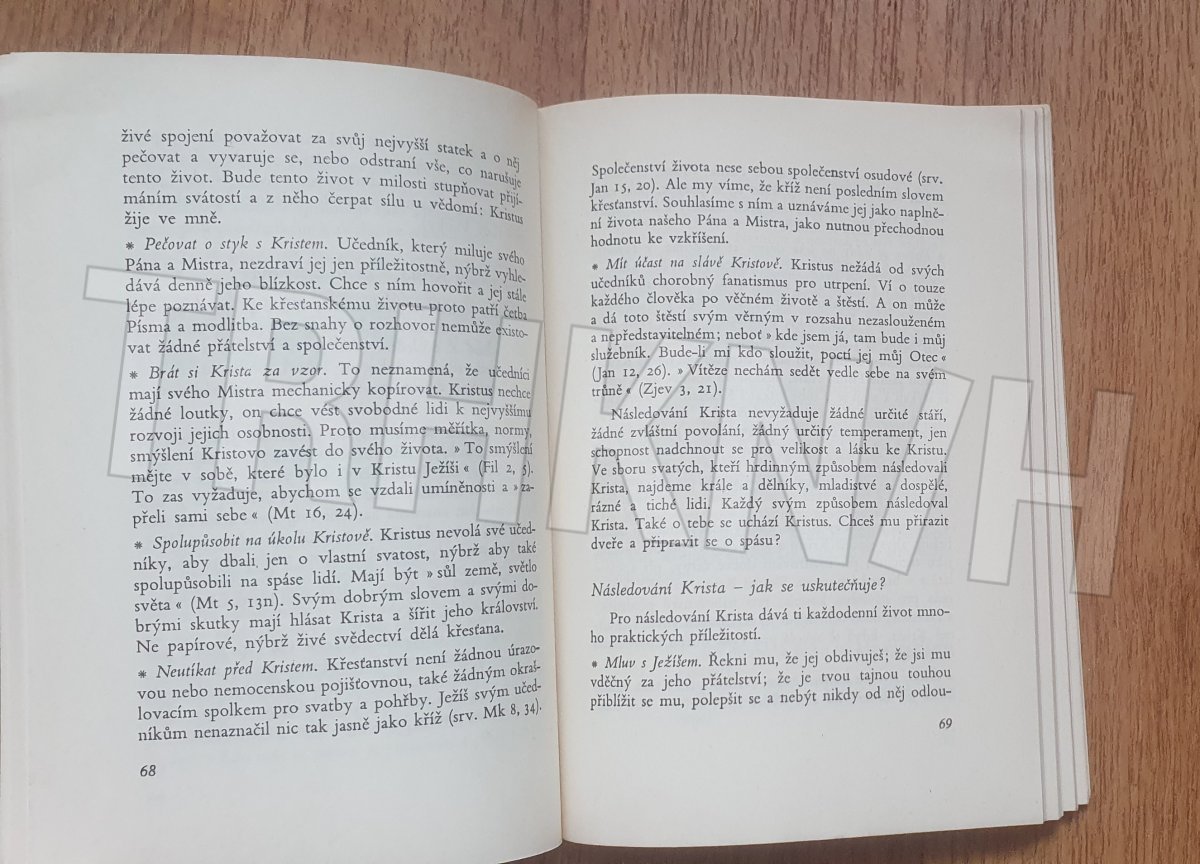 živé spojení považovat za svůj nejvyšší statek a o něj
pečovat a vyvaruje se, nebo odstraní vše, co narušuje
tento život. Bude tento život v milosti stupňovat přijí-
máním svátostí a z něho čerpat sílu u vědomí: Kristus
žije ve mně.
* Pečovat o styk s Kristem. Učedník, který miluje svého
Pána a Mistra, nezdraví jej jen příležitostně, nýbrž vyhle-
dává denně jeho blízkost. Chce s ním hovořit a jej stále
lépe poznávat. Ke křesťanskému životu proto patří četba
Písma a modlitba. Bez snahy o rozhovor nemůže existo-
vat žádné přátelství a společenství.
* Brát si Krista za vzor. To neznamená, že učedníci
mají svého Mistra mechanicky kopírovat. Kristus nechce
žádné loutky, on chce vést svobodné lidi k nejvyššímu
rozvoji jejich osobnosti. Proto musíme měřítka, normy,
smýšlení Kristovo zavést do svého života. » To smýšlení
mějte v sobě, které bylo i v Kristu Ježíši « (Fil 2, 5).
To zas vyžaduje, abychom se vzdali umíněnosti a » za-
přeli sami sebe « (Mt 16, 24).
* Spolupůsobit na úkolu Kristově. Kristus nevolá své učed-
níky, aby dbali jen o vlastní svatost, nýbrž aby také
spolupůsobili na spáse lidí. Mají být » sůl země, světlo
světa « (Mt 5, 13n). Svým dobrým slovem a svými do-
brými skutky mají hlásat Krista a šířit jeho království.
Ne papírové, nýbrž živé svědectví dělá křesťana.
* Neutíkat před Kristem. Křesťanství není žádnou úrazo-
vou nebo nemocenskou pojišťovnou, také žádným okraš-
lovacím spolkem pro svatby a pohřby. Ježíš svým učed-
níkům nenaznačil nic tak jasně jako kříž (srv. Mk 8, 34).
68
Společenství života nese sebou společenství osudové (srv.
Jan 15, 20). Ale my víme, že kříž není posledním slovem
křesťanství. Souhlasíme s ním a uznáváme jej jako naplně-
ní života našeho Pána a Mistra, jako nutnou přechodnou
hodnotu ke vzkříšení.
* Mít účast na slávě Kristově. Kristus nežádá od svých
učedníků chorobný fanatismus pro utrpení. Ví o touze
každého člověka po věčném životě a štěstí. A on může
a dá toto štěstí svým věrným v rozsahu nezaslouženém
a nepředstavitelném; neboť » kde jsem já, tam bude i můj
služebník. Bude-li mi kdo sloužit, poctí jej můj Otec «
(Jan 12, 26). » Vítěze nechám sedět vedle sebe na svém
trůně « (Zjev 3, 21).
Následování Krista nevyžaduje žádné určité stáří,
žádné zvláštní povolání, žádný určitý temperament, jen
schopnost nadchnout se pro velikost a lásku ke Kristu.
Ve sboru svatých, kteří hrdinným způsobem následovali
Krista, najdeme krále a dělníky, mladistvé a dospělé,
rázné a tiché lidi. Každý svým způsobem následoval
Krista. Také o tebe se uchází Kristus. Chceš mu přirazit
dveře a připravit se o spásu?
Následování Krista – jak se uskutečňuje?
Pro následování Krista dává ti každodenní život mno-
ho praktických příležitostí.
* Mluv s Ježíšem. Řekni mu, že jej obdivuješ; že jsi mu
vděčný za jeho přátelství; že je tvou tajnou touhou
přiblížit se mu, polepšit se a nebýt nikdy od něj odlou-
69
TRHKNIH